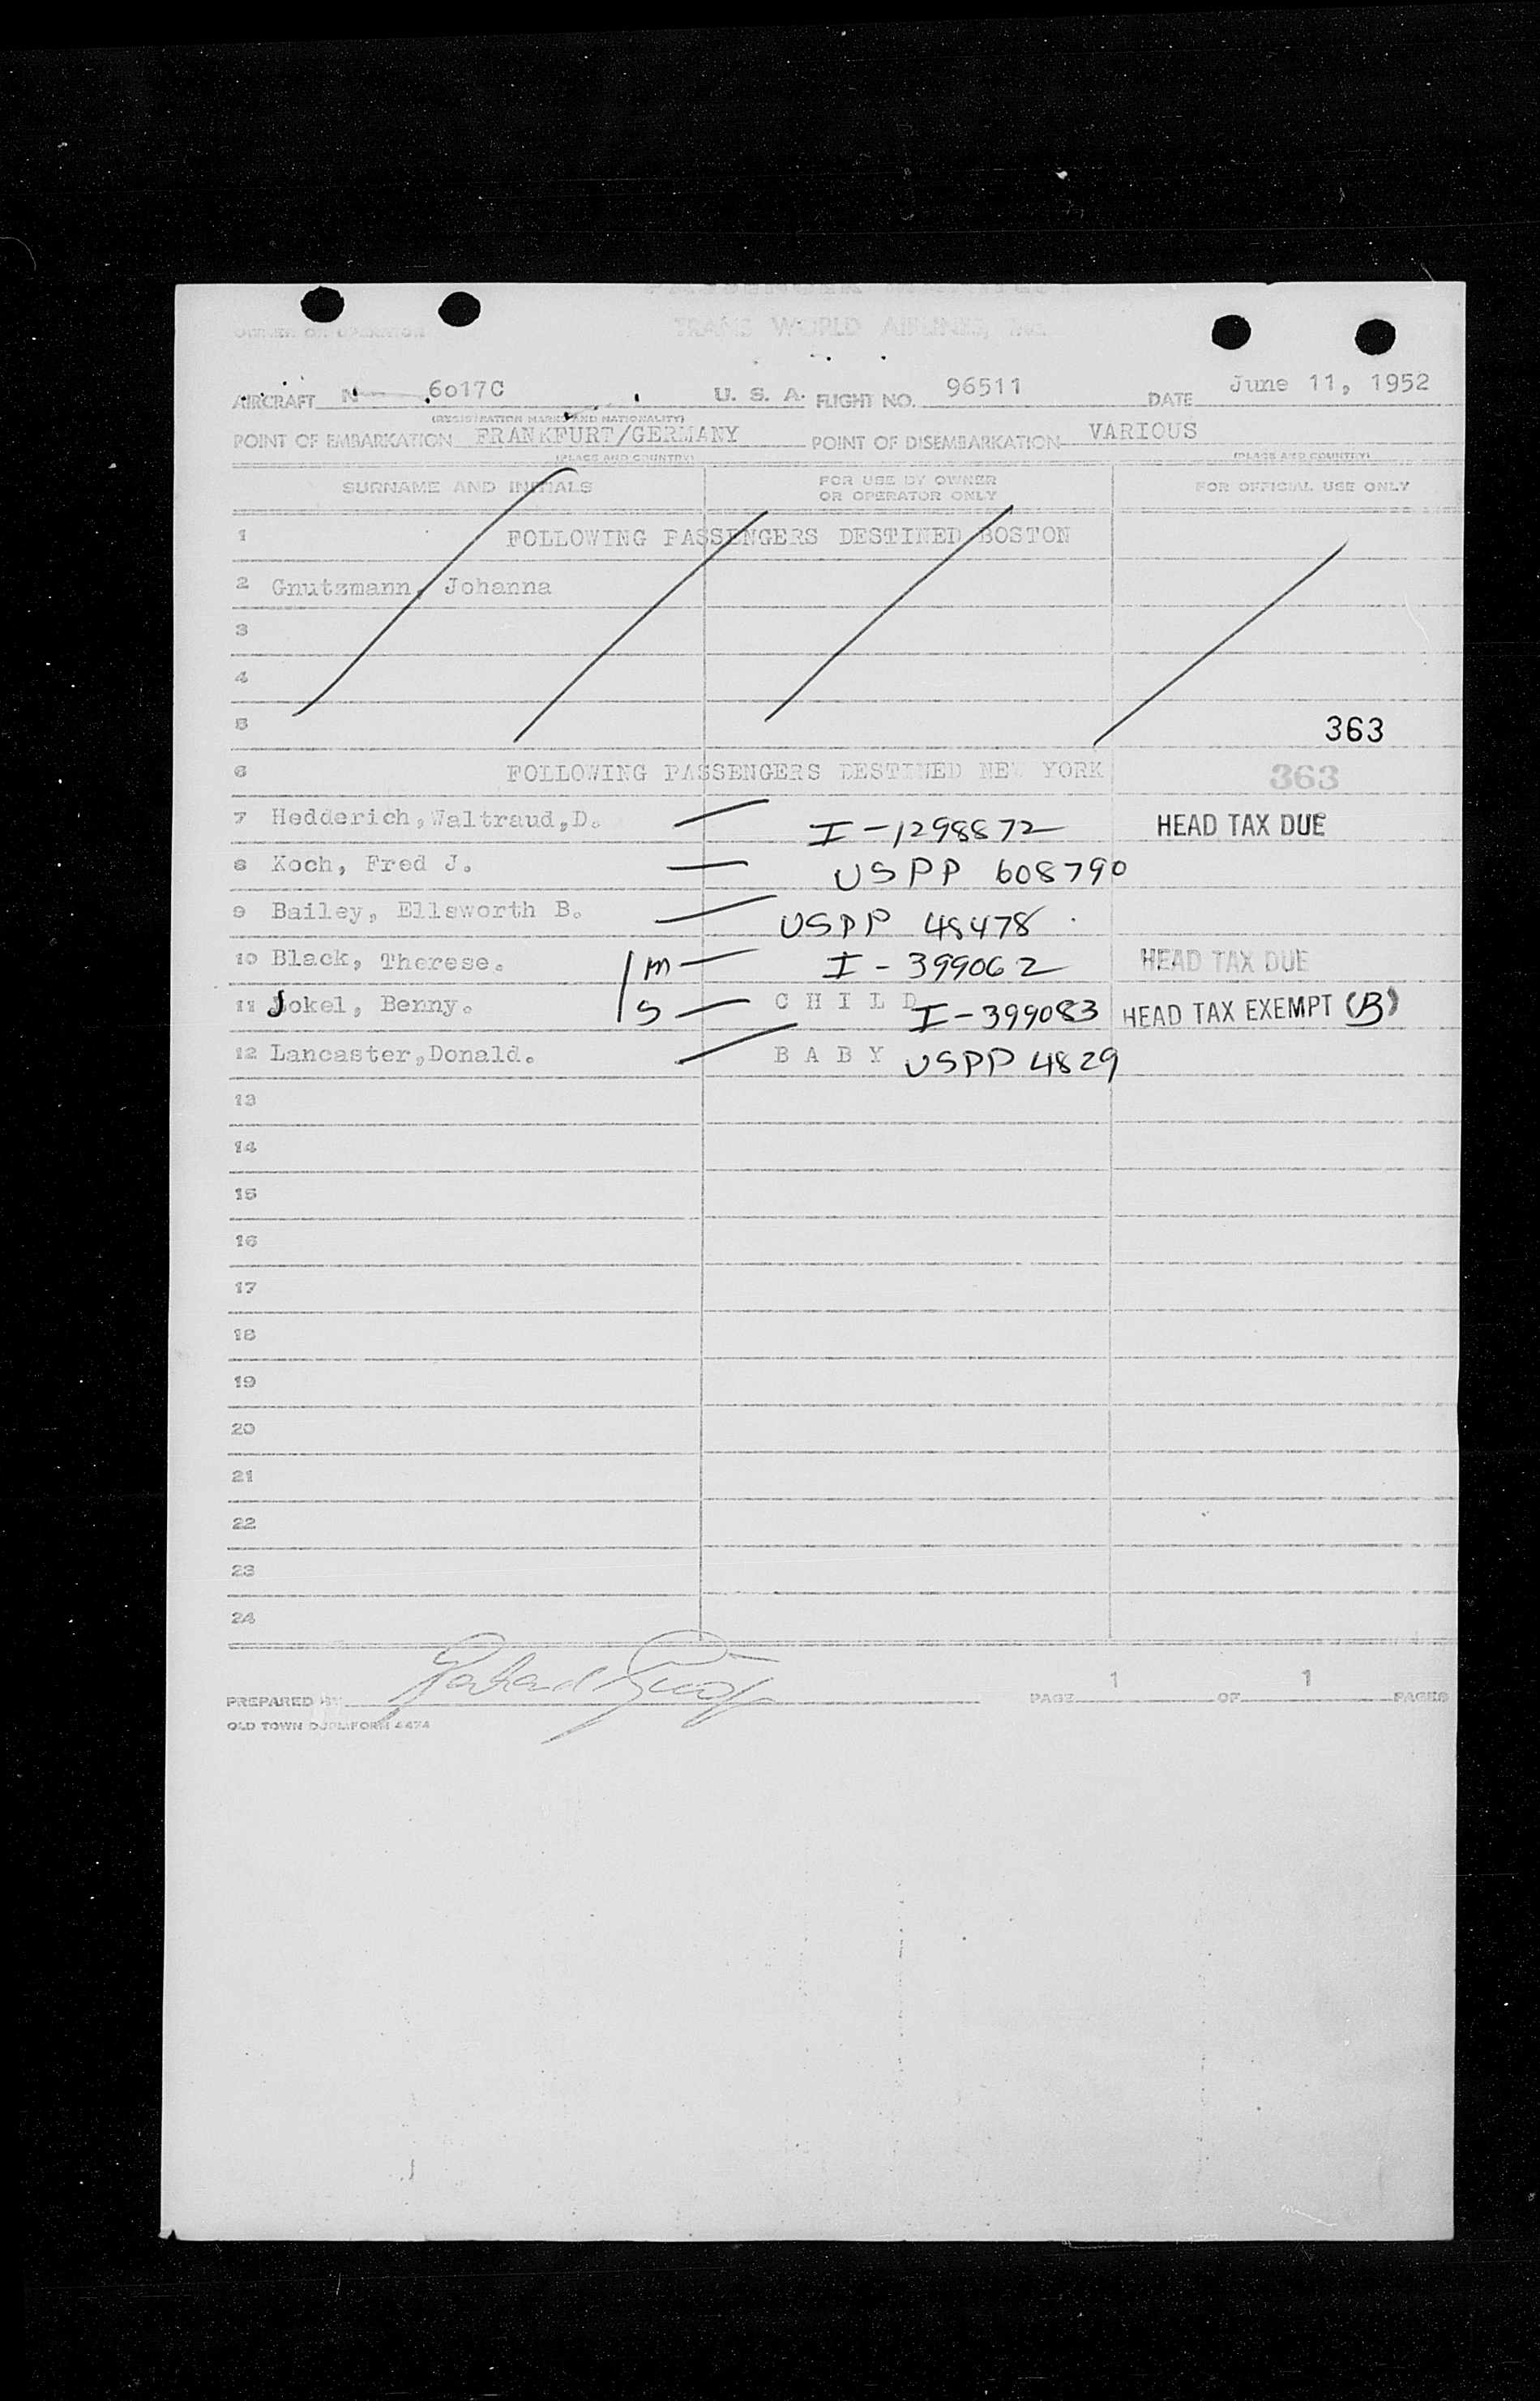 PASSENGER MANIFEST
OWNER OR OPERATOR TRANS WORLD AIRLINES, Inc.
AIRCRAFT N 6017C U. S. A. FLIGHT NO. 96511 DATE June 11, 1952
(REGISTRATION MARKS AND NATIONALITY)
POINT OF EMBARKATION FRANKFURT/GERMANY POINT OF DISEMBARKATION VARIOUS
(PLACE AND COUNTRY) (PLACE AND COUNTRY)
SURNAME AND INITIALS FOR USE BY OWNER OR OPERATOR ONLY FOR OFFICIAL USE ONLY
1 FOLLOWING PASSENGERS DESTINED BOSTON
2 Gnutzmann, Johanna
3
4
5 363
6 FOLLOWING PASSENGERS DESTINED NEW YORK 363
7 Hedderich,Waltraud,D. I-1298872 HEAD TAX DUE
8 Koch, Fred J. USPP 608790
9 Bailey, Ellsworth B. USPP 48478
10 Black, Therese. m I-399062 HEAD TAX DUE
11 Jokel, Benny. S CHILD I-399083 HEAD TAX EXEMPT (B)
12 Lancaster,Donald. BABY USPP 4829
13
14
15
16
17
18
19
20
21
22
23
24
PREPARED BY PAGE 1 OF 1 PAGES
OLD TOWN DUPLIFORM 4474